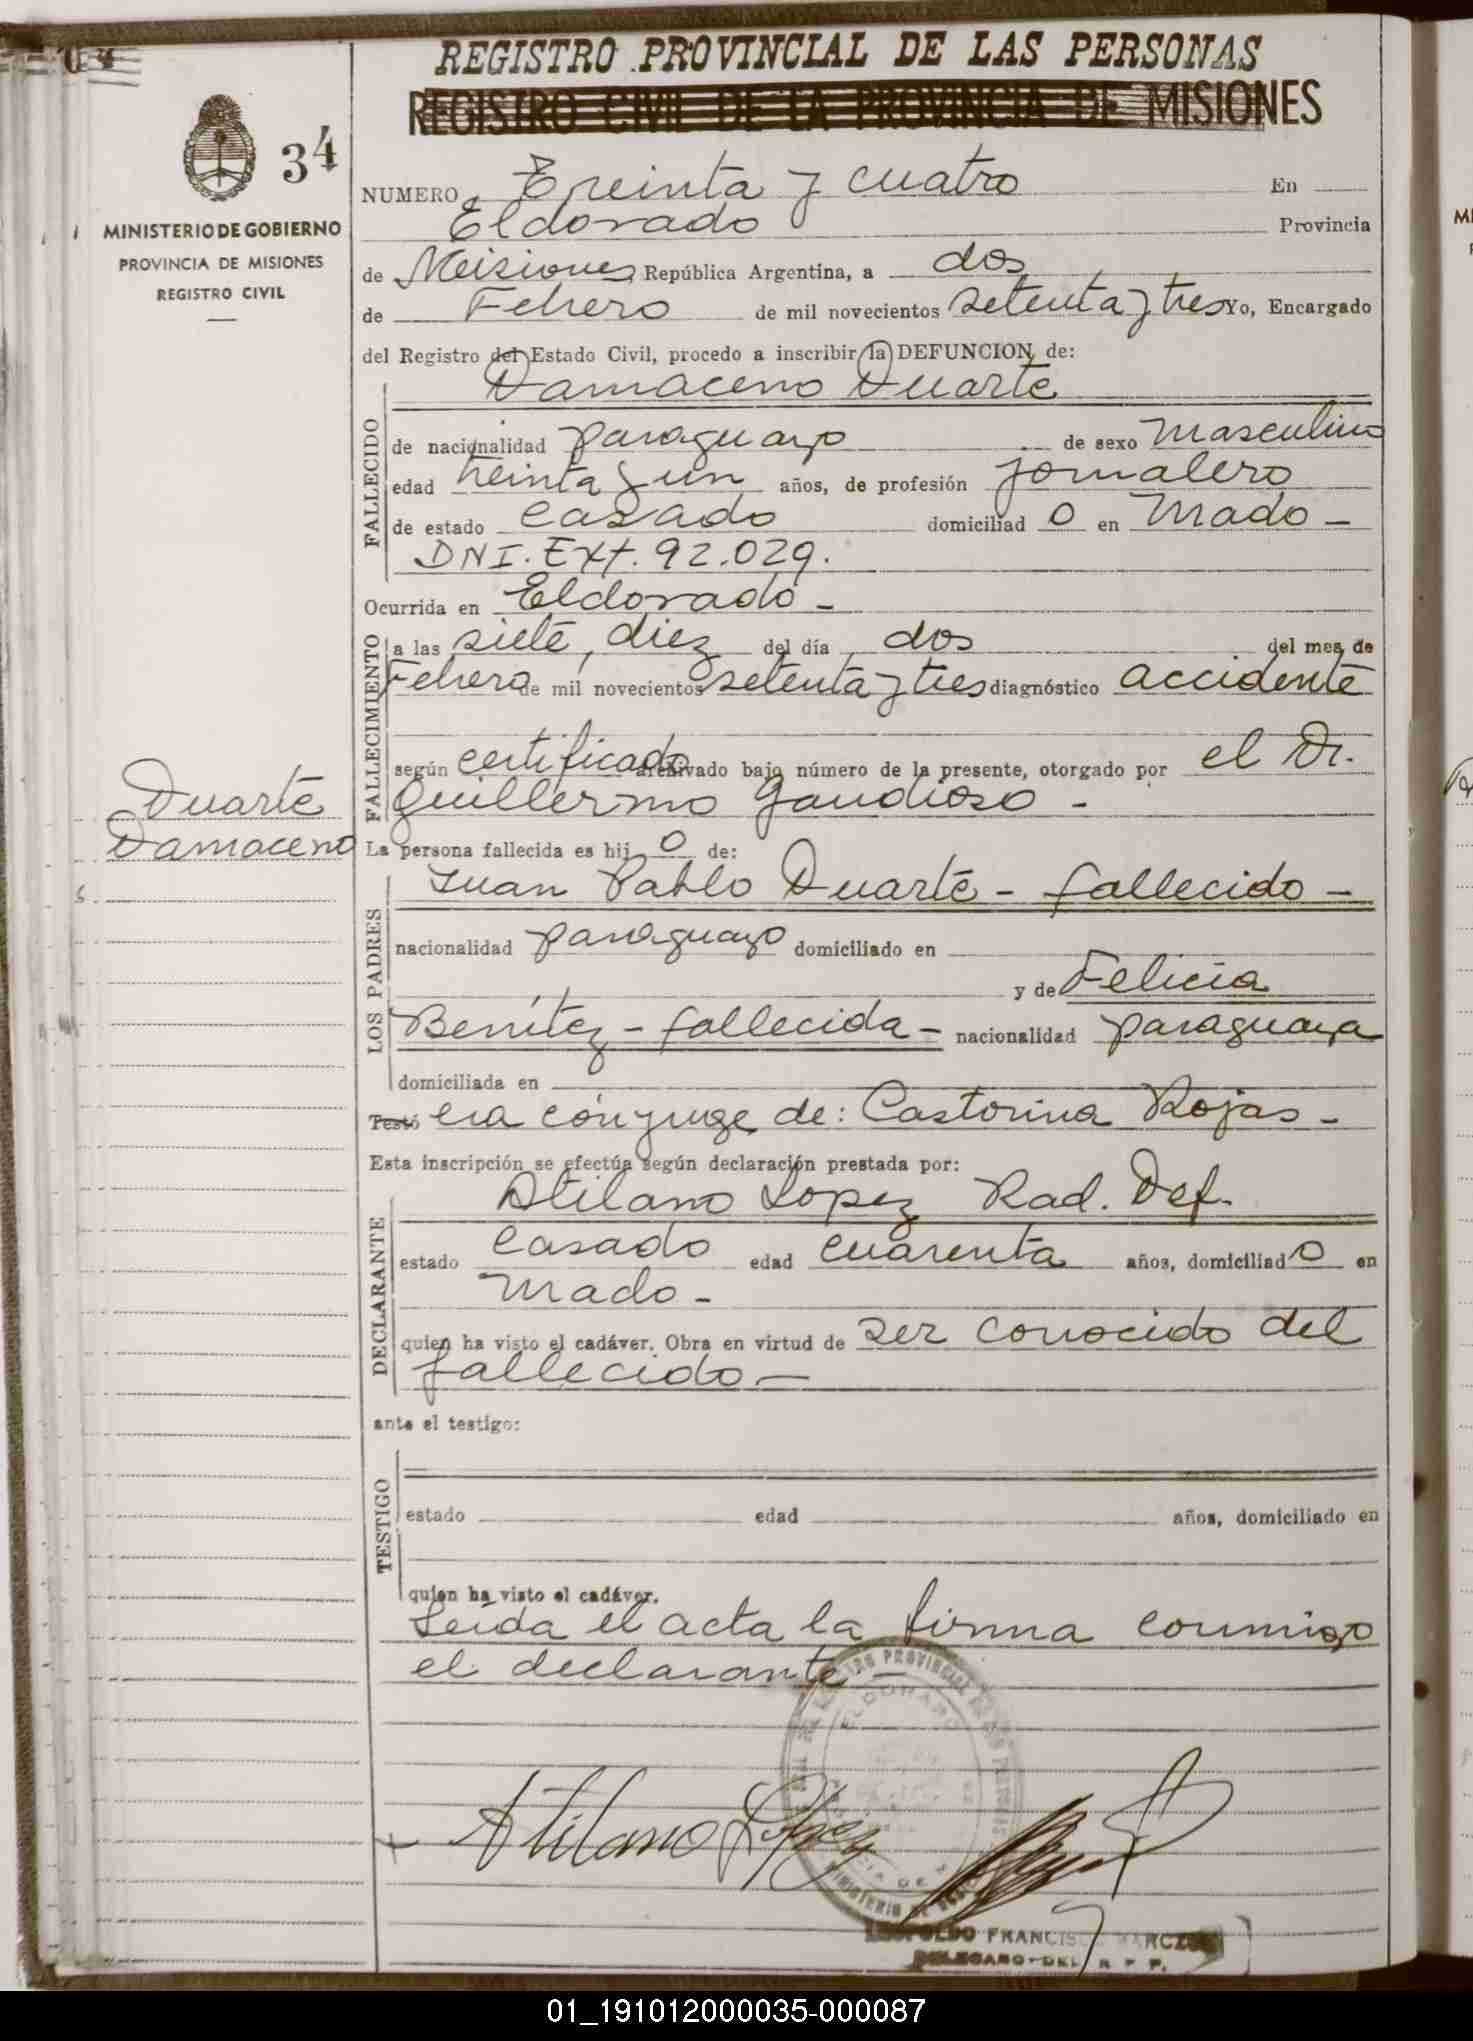 REGISTRO PROVINCIAL DE LAS PERSONAS
REGISTRO CIVIL DE LA PROVINCIA DE MISIONES
34
MINISTERIO DE GOBIERNO
PROVINCIA DE MISIONES
REGISTRO CIVIL
NUMERO Treinta y cuatro En
Eldorado Provincia
de Misiones República Argentina, a dos
de Febrero de mil novecientos setenta y tres Yo, Encargado
del Registro del Estado Civil, procedo a inscribir la DEFUNCION de:
Damaceno Duarte
FALLECIDO
de nacionalidad paraguayo de sexo Masculino
edad treinta y un años, de profesión jornalero
de estado Casado domiciliad o en Mado -
DNI. Ext. 92.029.
Ocurrida en Eldorado -
FALLECIMIENTO
a las siete, diez del día dos del mes de
Febrero de mil novecientos setenta y tres diagnóstico accidente
según certificado archivado bajo número de la presente, otorgado por el Dr.
Guillermo Gaudioso -
Duarte
Damaceno
La persona fallecida es hij o de:
LOS PADRES
Juan Pablo Duarte - fallecido -
nacionalidad paraguayo domiciliado en
y de Felicia
Benítez - fallecida - nacionalidad paraguaya
domiciliada en
Testó era cónyuge de: Castorina Rojas -
Esta inscripción se efectúa según declaración prestada por:
DECLARANTE
Atilano Lopez Rad. Def.
estado Casado edad cuarenta años, domiciliad o en
Mado -
quien ha visto el cadáver. Obra en virtud de ser conocido del
fallecido -
ante el testigo:
TESTIGO
estado edad años, domiciliado en
quien ha visto el cadáver.
Leída el acta la firma conmigo
el declarante -
Atilano López
ELDORADO
LEOPOLDO FRANCISCO
DELEGADO DEL R P P.
01_191012000035-000087